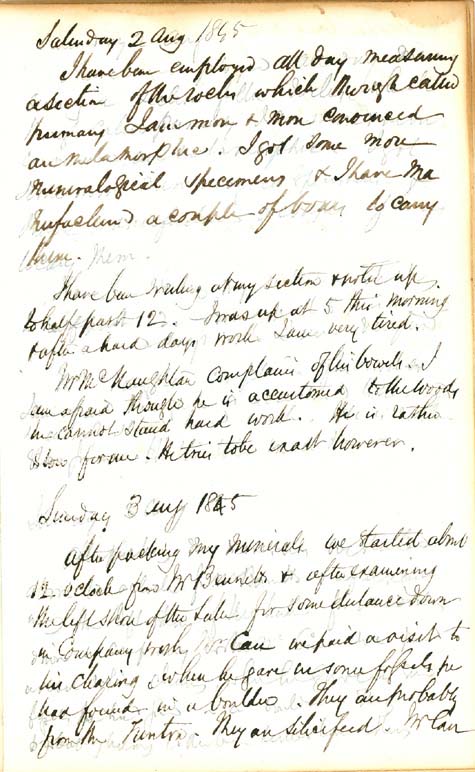 Saturday 2 Aug 1845
I have been employed all day measuring
a section of the rocks which though called
primary I am more & more convinced
are metamorphic. I got some more
mineralogical specimens & I have ma
nufactured a couple of boxes to carry
them.
I have been writing at my section & notes up
to half past 12. I was up at 5 this morning
& after a hard days work I am very tired.
Mr McNaughton complains of his bowels. I
am afraid though he is accustomed to the woods
he cannot stand hard work. He is rather
slow for me. He tries to be exact however.
Sunday 3 Aug 1845
After packing my minerals we started about
12 oclock from Mr Bennetts & after examining
the left shore of the Lake for some distance down
in Company with Mr Carr we paid a visit to
his where he gave us some fossils he
had found in a boulder. They are probably
from the Trenton. They are silicified. Mr Carr